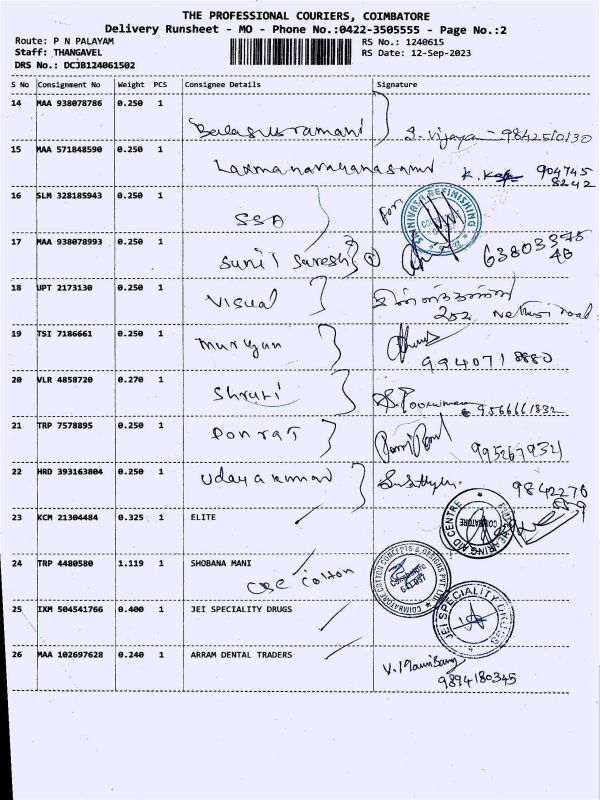 THE PROFESSIONAL COURIERS, COIMBATORE
Delivery Runsheet - MO - Phone No.:0422-3505555 - Page No.:2
Route: P N PALAYAM RS No.: 1240615
Staff: THANGAVEL RS Date: 12-Sep-2023
DRS No.: DCJB124061502
S No Consignment No Weight PCS Consignee Details Signature
14 MAA 938078786 0.250 1 Balasubramani S. Vijaya - 9842510130
15 MAA 571848590 0.250 1 Laxmanarayanasami K. 904745
8242
16 SLM 328185943 0.250 1 SSA For
SRINIVASA REFINISHING
17 MAA 938078993 0.250 1 Sunil Suresh 63803375
40
18 UPT 2173130 0.250 1 Visual
252 Nethaji road
19 TSI 7186661 0.250 1 murugan
9940718880
20 VLR 4858720 0.270 1 Shruti S. Poornima
9566661832
21 TRP 7578895 0.250 1 Ponraj
995267932
22 HRD 393163804 0.250 1 Udayakumar 9842276
23 KCM 21304484 0.325 1 ELITE
HEARING AID CENTRE
COIMBATORE
24 TRP 4480580 1.119 1 SHOBANA MANI
CBE Cotton
COIMBATORE COTTON CONCEPTS & DESIGNS PVT LTD
Coimbatore
641 037
25 IXM 504541766 0.400 1 JEI SPECIALITY DRUGS
JEI SPECIALITY DRUGS
26 MAA 102697628 0.240 1 ARRAM DENTAL TRADERS
9894180345